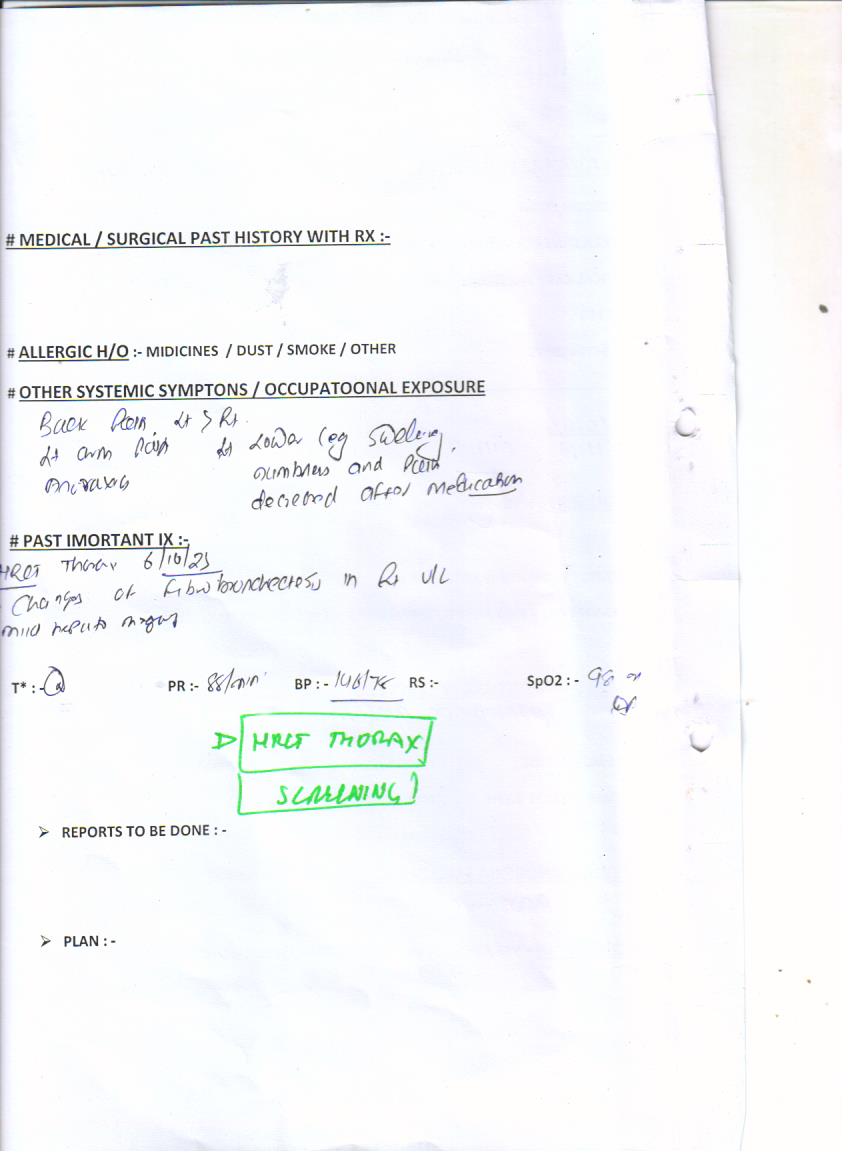 # MEDICAL / SURGICAL PAST HISTORY WITH RX :-
# ALLERGIC H/O :- MIDICINES / DUST / SMOKE / OTHER
# OTHER SYSTEMIC SYMPTONS / OCCUPATOONAL EXPOSURE
Back Pain Lt > Rt.
Lt arm Pain Lt Lower leg swelling,
numbness and Pain
decreased after medication
# PAST IMORTANT IX :-
HRCT Thorax 6/10/23
Changes of Fibrobronchectosis in Rt U/L
mild hepato
T* :- PR :- 88/min BP : - 146/78 RS :- SpO2 : - 98
HRCT THORAX
SCREENING
➢ REPORTS TO BE DONE : -
➢ PLAN : -